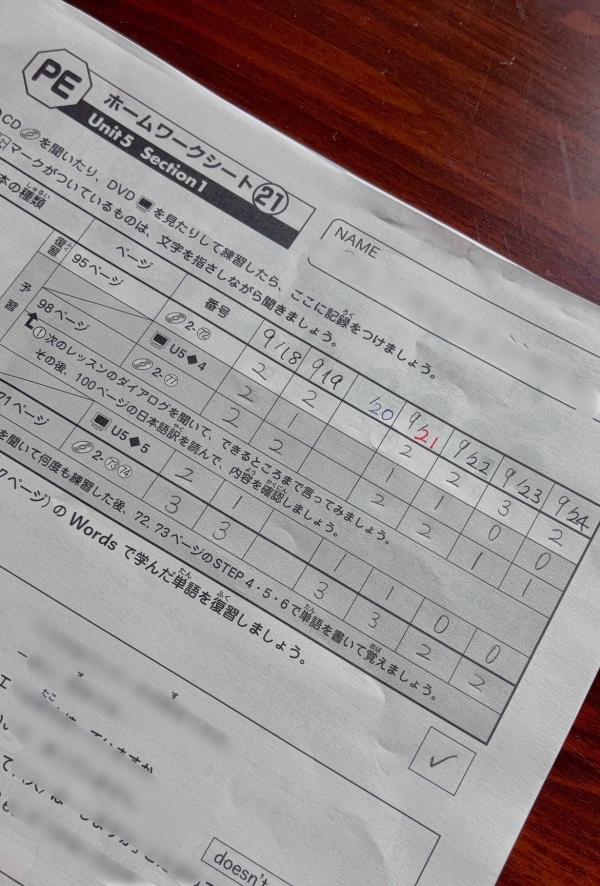 PE ホームワークシート㉑
Unit 5 Section 1
NAME
CD を聞いたり、DVD を見たりして練習したら、ここに記録をつけましょう。
マークがついているものは、文字を指さしながら聞きましょう。
本の種類 ページ 番号 9/18 9/19 /20 9/21 9/22 9/23 9/24
復習 95ページ 2-72 2 2 2 2 3 2
U5◆4 2 1 1 1 0 0
予習 98ページ 2-77 2 2 2 2 1 1
①次のレッスンのダイアログを聞いて、できるところまで言ってみましょう。
その後、100ページの日本語訳を読んで、内容を確認しましょう。
71ページ U5◆5 2 1 1 1 0 0
2-73 74 3 3 3 3 2 2
を聞いて何度も練習した後、72、73ページのSTEP 4・5・6で単語を書いて覚えましょう。
7ページ）の Words で学んだ単語を復習しましょう。
✓
doesn't